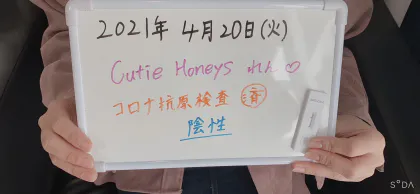 2021年 4月20日(火)
Cutie Honeys れん♡
コロナ抗原検査 済
陰性
SODA